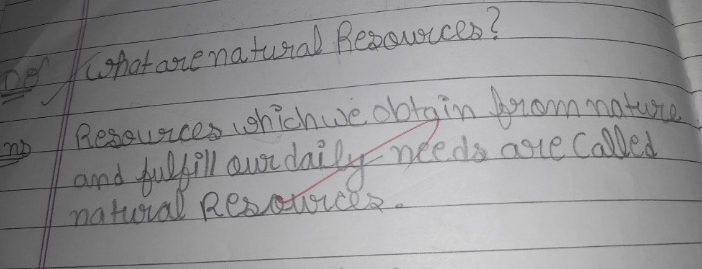 What are natural Resources?
Resources which we obtain from nature
and fulfill our daily needs are called
natural Resources.